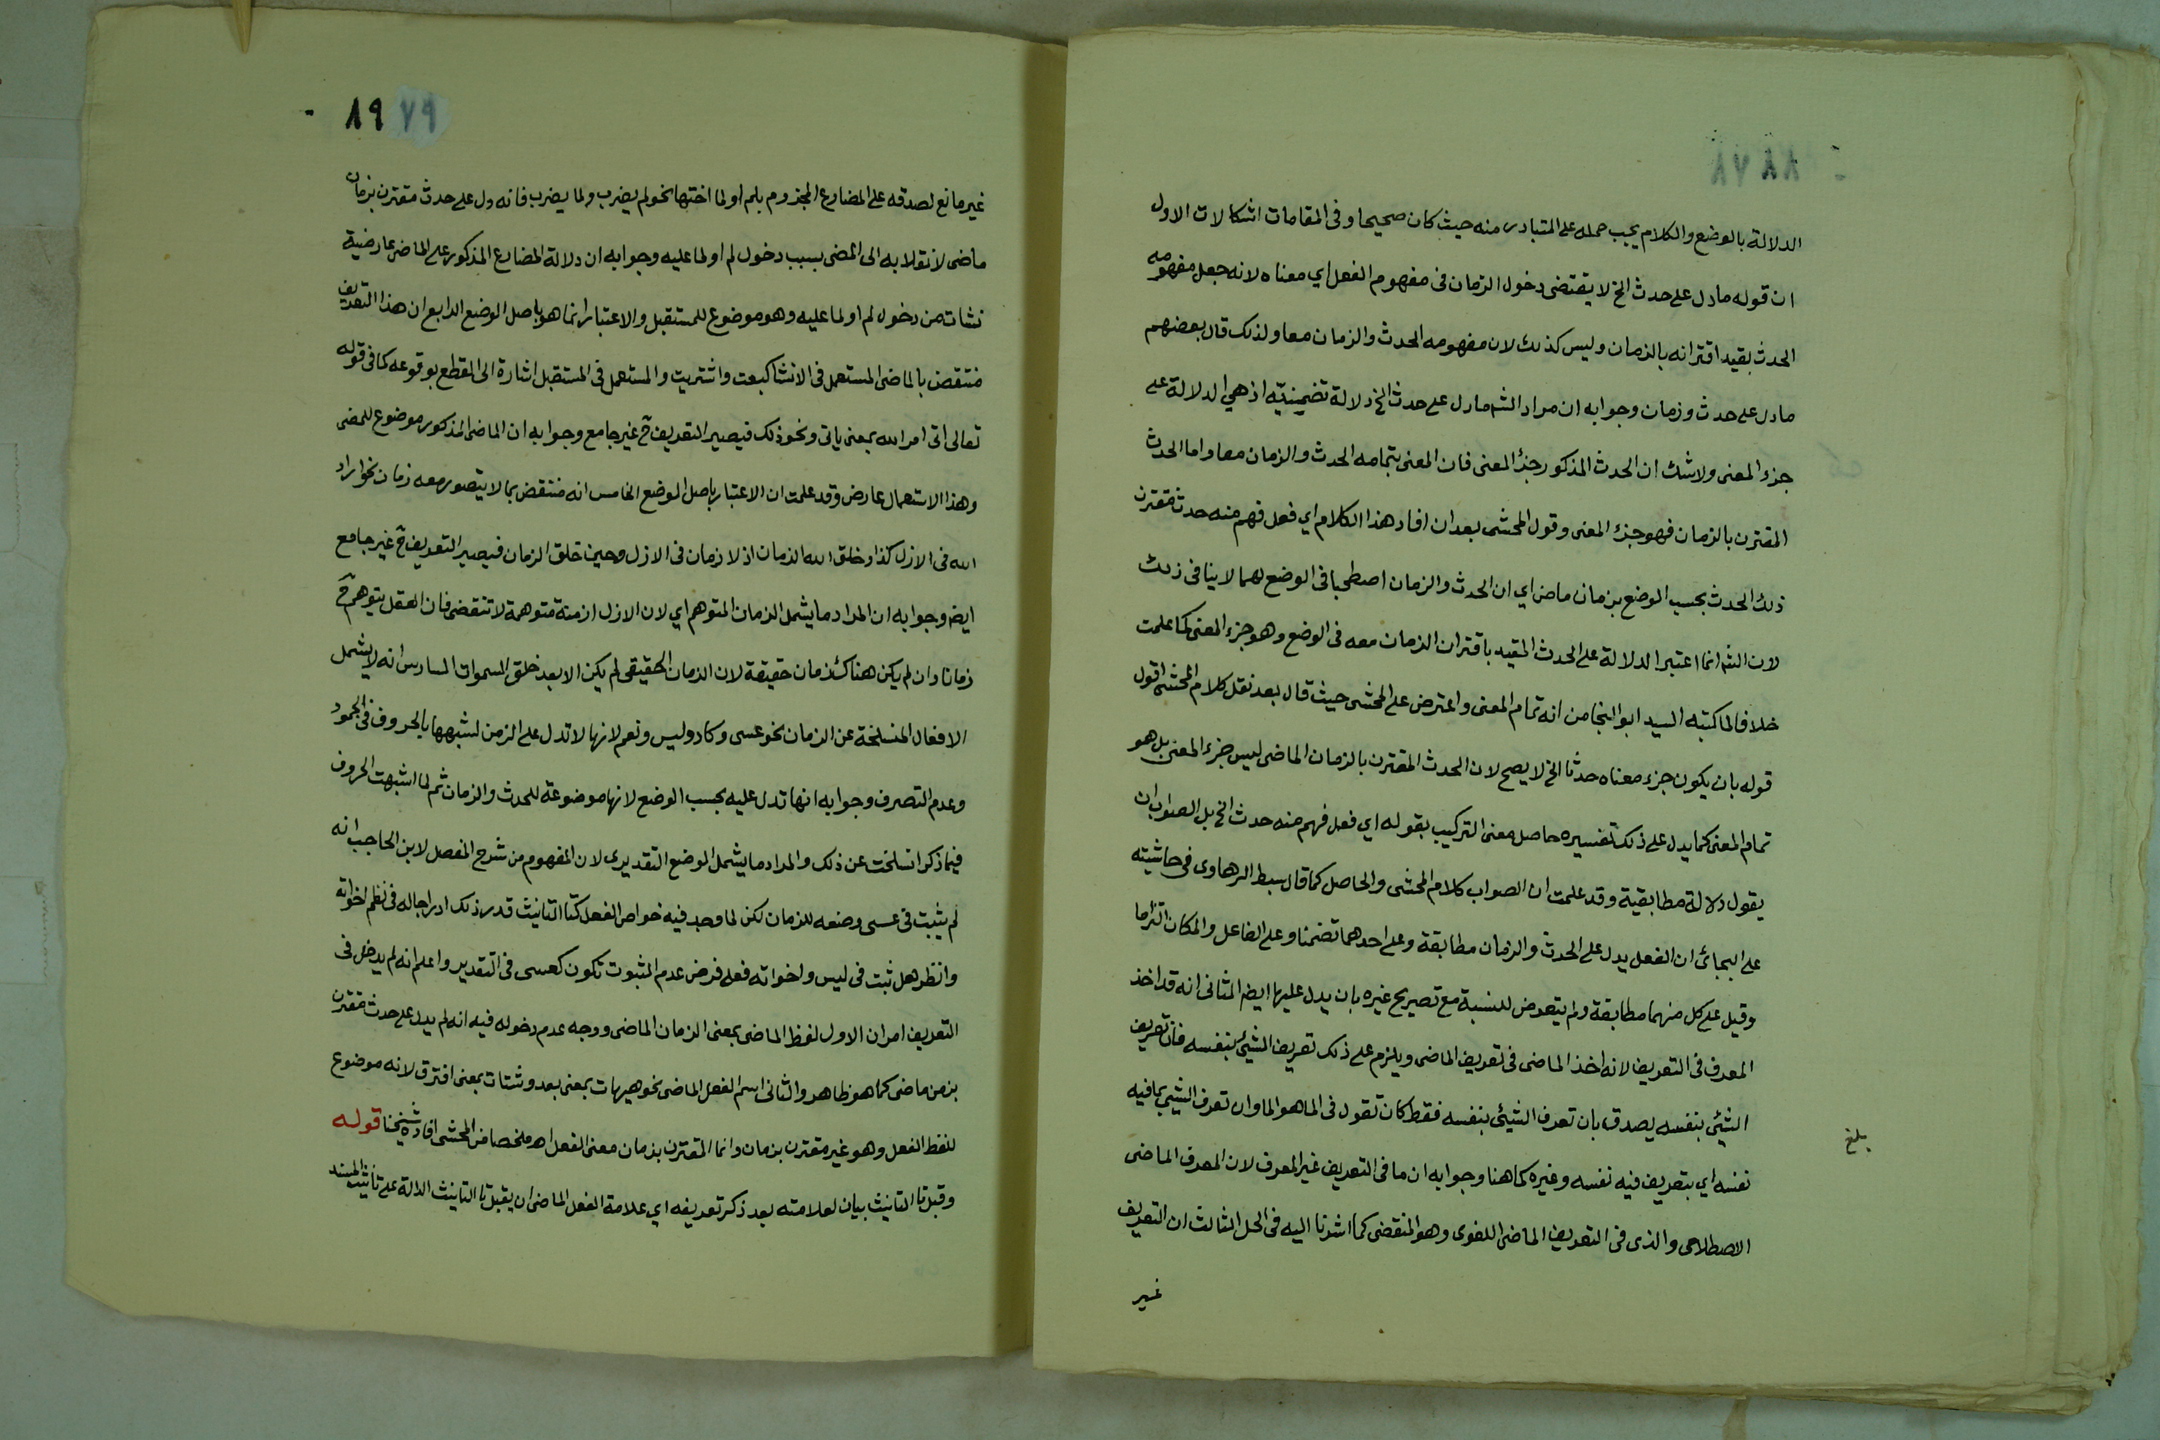 ٨٨ ٧٨
الدلالة بالوضع والكلام يجب حمله على المتبادر منه حيث كان صحيحا وفى المقامات اشكالات الاول
ان قوله مادل على حدث الخ لا يقتضى دخول الزمان فى مفهوم الفعل اي معناه لانه جعل مفهومه
الحدث بقيد اقترانه بالزمان وليس كذلك لان مفهومه الحدث والزمان معا ولذلك قال بعضهم
مادل على حدث وزمان وجوابه ان مراد الشم مادل على حدث الخ دلالة تضمنية اذ هي الدلالة على
جزء المعنى ولاشك ان الحدث المذكور جزؤ المعنى فان المعنى بتمامه الحدث والزمان معا واما الحدث
المقترن بالزمان فهو جزء المعنى وقول المحشى بعد ان افاد هذا الكلام اي فعل فهم منه حدث مقترن
ذلك الحدث بحسب الوضع بزمان ماض اي ان الحدث والزمان اصطحبا فى الوضع لهما لا ينافى ذلك
لان الشم انما اعتبر الدلالة على الحدث المقيد باقتران الزمان معه فى الوضع وهو جزء المعنى كما علمت
خلافا لما كتبه السيد ابو النجا من انه تمام المعنى واعترض على المحشى حيث قال بعد نقل كلام المحشى اقول
قوله بان يكون جزء معناه حدثا الخ لا يصح لان الحدث المقترن بالزمان الماضى ليس جزء المعنى بل هو
تمام المعنى كما يدل على ذلك تفسيره حاصل معنى التركيب بقوله اي فعل فهم منه حدث الخ بل الصواب ان
يقول دلالة مطابقية وقد علمت ان الصواب كلام المحشى والحاصل كما قال سبط الرهاوى فى حاشيته
على البجائى ان الفعل يدل على الحدث والزمان مطابقة وعلى احدهما تضمنا وعلى الفاعل والمكان التزاما
وقيل على كل منهما مطابقة ولم يتعرض للنسبة مع تصريح غيره بان يدل عليها ايضم الثانى انه قد اخذ
المعرف فى التعريف لانه اخذ الماضى فى تعريف الماضى ويلزم على ذلك تعريف الشيئ بنفسه فان تعريف
الشيئ بنفسه يصدق بان تعرف الشيئ بنفسه فقط كان تقول فى الما هو الما وان تعرف الشيئ بما فيه
نفسه اي بتعريف فيه نفسه وغيره كما هنا وجوابه ان ما فى التعريف غير المعرف لان المعرف الماضى
الاصطلاحى والذى فى التعريف الماضى اللغوى وهو المنقضى كما اشرنا اليه فى الحل الثالث ان التعريف
غير
بلغ
٨٩ ٧٩
غير مانع لصدقه على المضارع المجزوم بلم او لما اختها نحو لم يضرب ولما يضرب فانه دل على حدث مقترن بزمان
ماضى لانقلابه الى المضى بسبب دخول لم او لما عليه وجوابه ان دلالة المضارع المذكور على الماضى عارضية
نشات من دخول لم او لما عليه وهو موضوع للمستقبل والاعتبار انما هو باصل الوضع الرابع ان هذا التعريف
منتقض بالماضى المستعمل فى الانشا كبعت واشتريت والمستعمل فى المستقبل اشارة الى القطع بوقوعه كما فى قوله
تعالى اتى امر الله بمعنى ياتى ونحو ذلك فيصير التعريف ح غير جامع وجوابه ان الماضى المذكور موضوع للمضى
وهذا الاستعمال عارض وقد علمت ان الاعتبار باصل الوضع الخامس انه منتقض بما لا يتصور معه زمان نحو اراد
الله فى الازل كذا وخلق الله الزمان اذ لا زمان فى الازل وحين خلق الزمان فيصير التعريف ح غير جامع
ايضم وجوابه ان المراد ما يشمل الزمان المتوهم اي لان الازل ازمنة متوهمة لا تنقضى فان العقل يتوهم ح
زمانا وان لم يكن هناك زمان حقيقة لان الزمان الحقيقى لم يكن الا بعد خلق السموات السادس انه لا يشمل
الافعال المنسلخة عن الزمان نحو عسى وكاد وليس ونعم لانها لا تدل على الزمن لشبهها بالحروف فى الجمود
وعدم التصرف وجوابه انها تدل عليه بحسب الوضع لانها موضوعة للحدث والزمان ثم لما اشبهت الحروف
فيما ذكر انسلخت عن ذلك والمراد ما يشمل الوضع التقديرى لان المفهوم من شرح المفصل لابن الحاجب انه
لم يثبت فى عسى وضعه للزمان لكن لما وجد فيه خواص الفعل كتا التانيث قدر ذلك ادراجا له فى نظم اخواته
وانظر هل ثبت فى ليس واخواته فعلى فرض عدم الثبوت تكون كعسى فى التقدير واعلم انه لم يدخل فى
التعريف امران الاول لفظ الماضى بمعنى الزمان الماضى ووجه عدم دخوله فيه انه لم يدل على حدث مقترن
بزمن ماضى كما هو ظاهر والثانى اسم الفعل الماضى نحو هيهات بمعنى بعد وشتات بمعنى افترق لانه موضوع
للفظ الفعل وهو غير مقترن بزمان وانما المقترن بزمان معنى الفعل اهـ ملخصا من المحشى افاده شيخنا قوله
وقبل تا التانيث بيان لعلامته بعد ذكر تعريفه اي علامة الفعل الماضى ان يقبل تا التانيث الدالة على تانيث المسند